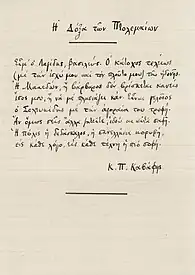 Η Δόξα των Πτολεμαίων
Είμ' ο Λαγίδης, βασιλεύς. Ο κάτοχος τελείως
(με την ισχύ μου και τον πλούτο μου) της ηδονής.
Η Μακεδών, ή βάρβαρος δεν βρίσκεται κανείς
ίσος μου, ή να με πλησιάζει καν. Είναι γελοίος
ο Σελευκίδης με την αγοραία του τρυφή.
Αν όμως σεις άλλα ζητείτε, ιδού κι αυτά σαφή.
Η πόλις η διδάσκαλος, η πανελλήνια κορυφή,
εις κάθε λόγο, εις κάθε τέχνη η πιο σοφή.
Κ. Π. Καβάφης